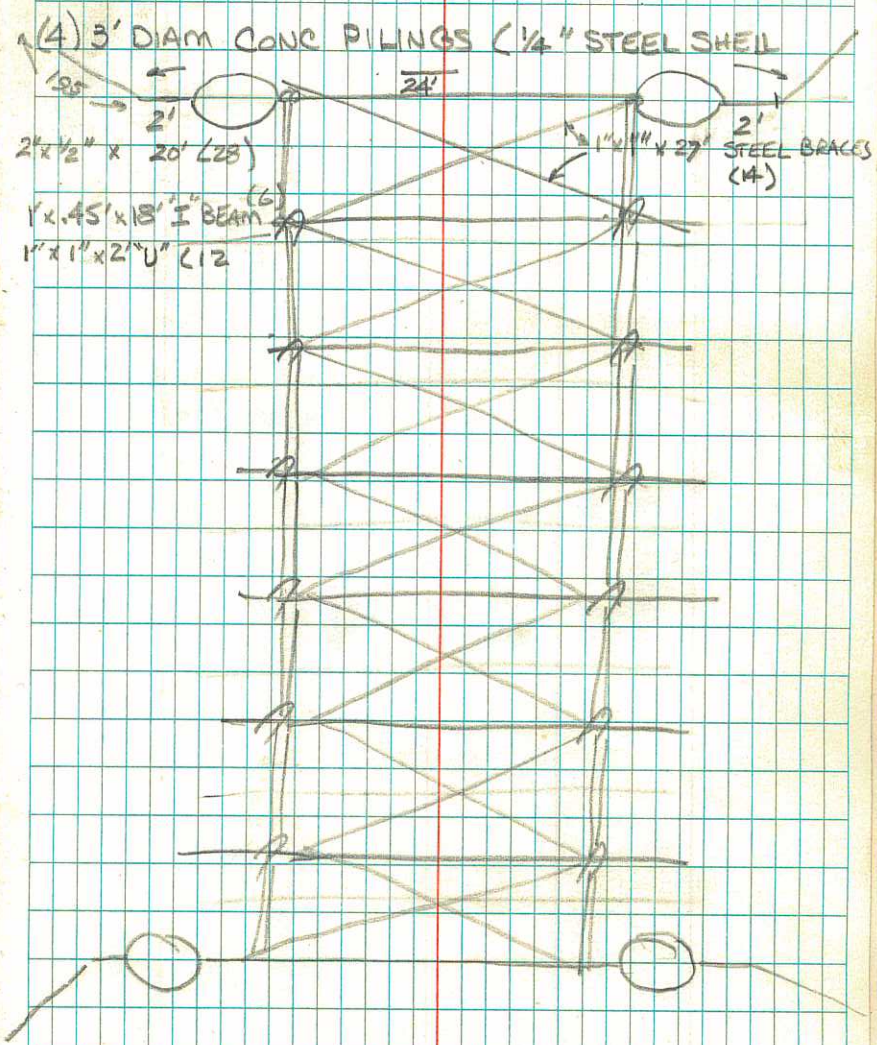 (4) 3' DIAM CONC PILINGS (1/4" STEEL SHELL
24'
2'
2'
2" x 1/2" x 20' (28)
1" x 1" x 27' STEEL BRACES
(14)
(6)
1' x .45' x 18' "I" BEAM
1" x 1" x 2' "U" (12